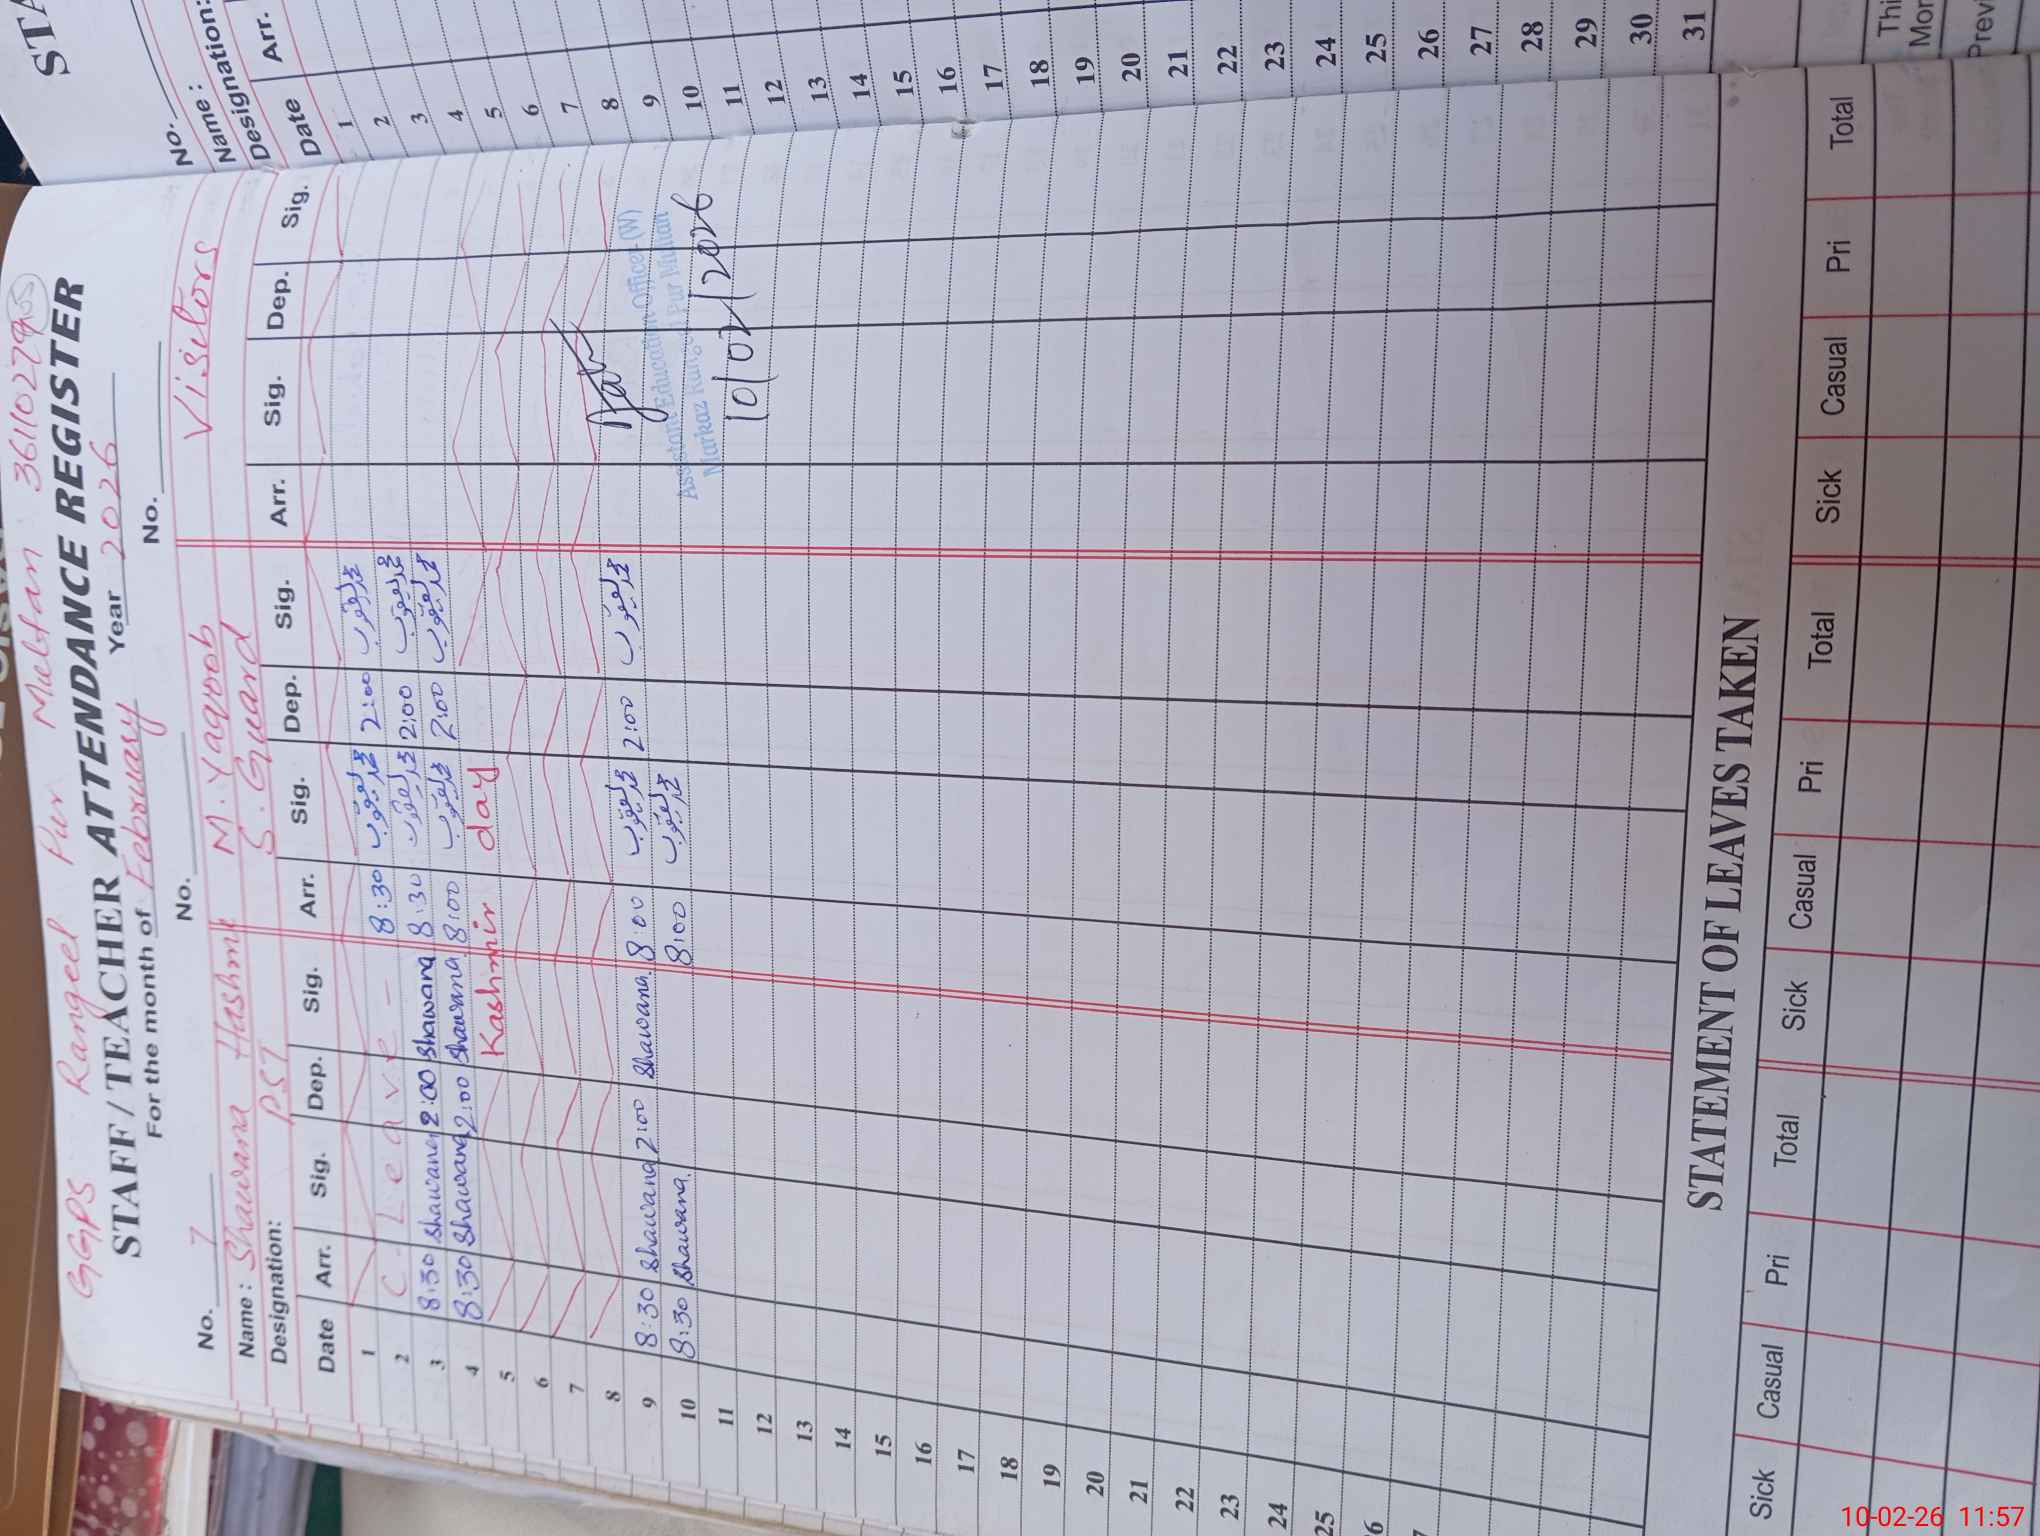 GGPS Rangeel Pur Multan 36110279
STAFF / TEACHER ATTENDANCE REGISTER
For the month of February Year 2026
No. 7 No. No.
Name : Shawana Hashmi M. Yaqoob Visitors
Designation: PST S. Guard
Date Arr. Sig. Dep. Sig. Arr. Sig. Dep. Sig. Arr. Sig. Dep. Sig.
1
2 C - Leave - 8:30 محمد یعقوب 2:00 محمد یعقوب
3 8:30 Shawana 2:00 Shawana 8:30 محمد یعقوب 2:00 محمد یعقوب
4 8:30 Shawana 2:00 Shawana 8:00 محمد یعقوب 2:00 محمد یعقوب
5 Kashmir day
6
7
8
9 8:30 Shawana 2:00 Shawana. 8:00 محمد یعقوب 2:00 محمد یعقوب
10 8:30 Shawana. 8:00 محمد یعقوب
Assistant Education Officer (W)
Markaz Pur Multan
10/02/2026
11
12
13
14
15
16
17
18
19
20
21
22
23
24
25
STATEMENT OF LEAVES TAKEN
Sick Casual Pri Total Sick Casual Pri Total Sick Casual Pri Total
STA
No.
Name :
Designation:
Date Arr.
1
2
3
4
5
6
7
8
9
10
11
12
13
14
15
16
17
18
19
20
21
22
23
24
25
26
27
28
29
30
31
Thi
Mor
Previ
10-02-26 11:57